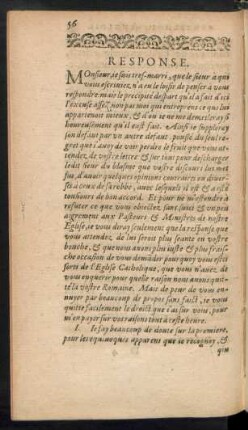 56
RESPONSE.
MOnsieur, ie suis tres-marri, que le sieur à qui
vous escriuiez, n'a eu le loisir de penser à vous
respondre: mais le precipice depart qu'il a fait d'ici
l'excuse assez, non pas moy qui entreprens ce qui luy
appartenoit mieux, & d'où ie ne me demesleray si
heureusement qu'il eust fait. Aussi ie supplierey
son defaut par vn autre defaut. pensé du seul re-
gret que i'auoy de voir perdre le fruict que vous at-
tendez, de vostre lettre & sur tout pour descharger
ledit sieur du blasme que vostre discours luy met
sus, d'auoir quelques opinions contraires ou diuer-
ses à ceux de sa robbe, auec lesquels il est & a esté
tousiours de bon accord. Et pour me m'estendre à
refuter ce que vous obiectez sans suiet & vn peu
aigrement aux Pasteurs & Ministres de nostre
Eglise, ie vous diray seulement que la response que
vous attendez, de luy seroit plus seante en vostre
bouche, & que nous auons plus iuste & plus frais-
che occasion de vous demander pourquoy vous estes
sorti de l'Eglise Catholique, que vous n'auez de
vous enquerir pour quelle raison nous auons quit-
té la vostre Romaine. Mais de peur de vous en-
nuyer par beaucoup de propos sans fruict, ie vous
quitte facilement le droict que i'ai sur vous, pour
m'en payer sur vos raisons tout à ceste heure.
I. Ie fay beaucoup de doute sur la premiere,
pour les equiuoques apparens que ie recognoy, &
que